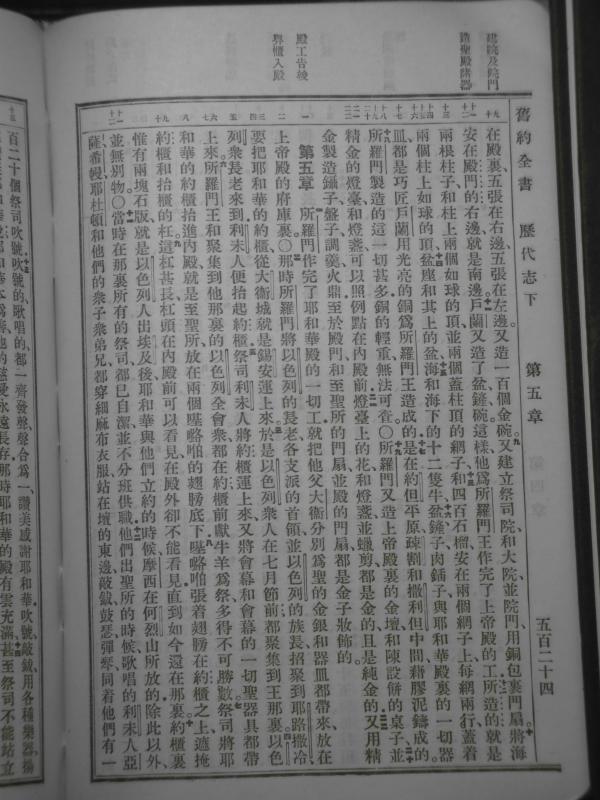 建院及院門
造聖殿諸器
殿工告竣
舁櫃入殿
舊約全書 歷代志下 第五章 五百二十四
在殿裏五張在右邊五張在左邊又造一百個金碗又建立祭司院和大院並院門用銅包裹門扇將海
安在殿門的右邊就是南邊戶蘭又造了盆鏟碗這樣他爲所羅門王作完了上帝殿的工所造的就是
兩根柱子和柱上兩個如球的頂並兩個蓋柱頂的網子和四百石榴安在兩個網子上每網兩行蓋着
兩個柱上如球的頂盆座和其上的盆海和海下的十二隻牛盆鏟子肉鍤子與耶和華殿裏的一切器
皿都是巧匠戶蘭用光亮的銅爲所羅門王造成的是在約但平原疎割和撒利但中間藉膠泥鑄成的
所羅門製造的這一切甚多銅的輕重無法可查〇所羅門又造上帝殿裏的金壇和陳設餅的桌子並
精金的燈臺和燈盞可以照例點在內殿前燈臺上的花和燈盞並蠟剪都是金的且是純金的又用精
金製造鑷子盤子調羹火鼎至於殿門和至聖所的門扇並殿的門扇都是金子妝飾的
第五章 所羅門作完了耶和華殿的一切工就把他父大衞分別爲聖的金銀和器皿都帶來放在
上帝殿的府庫裏〇那時所羅門將以色列的長老各支派的首領並以色列的族長招聚到耶路撒冷
要把耶和華的約櫃從大衞城就是錫安運上來於是以色列衆人在七月節前都聚集到王那裏以色
列衆長老來到利未人便抬起約櫃祭司利未人將約櫃運上來又將會幕和會幕的一切聖器具都帶
上來所羅門王和聚集到他那裏的以色列全會衆都在約櫃前獻牛羊爲祭多得不可勝數祭司將耶
和華的約櫃抬進內殿就是至聖所放在兩個𠼻𡀔啪的翅膀底下𠼻𡀔啪張着翅膀在約櫃之上遮掩
約櫃和抬櫃的杠這杠甚長杠頭在內殿前可以看見在殿外卻不能看見直到如今還在那裏約櫃裏
惟有兩塊石版就是以色列人出埃及後耶和華與他們立約的時候摩西在何烈山所放的除此以外
並無別物〇當時在那裏所有的祭司都已自潔並不分班供職他們出聖所的時候歌唱的利未人亞
薩希幔耶杜頓和他們的衆子衆弟兄都穿細麻布衣服站在壇的東邊敲鈸鼓瑟彈琴同着他們有一
百二十個祭司吹號吹號的歌唱的都一齊發聲聲合爲一讚美感謝耶和華吹號敲鈸用各種樂器揚